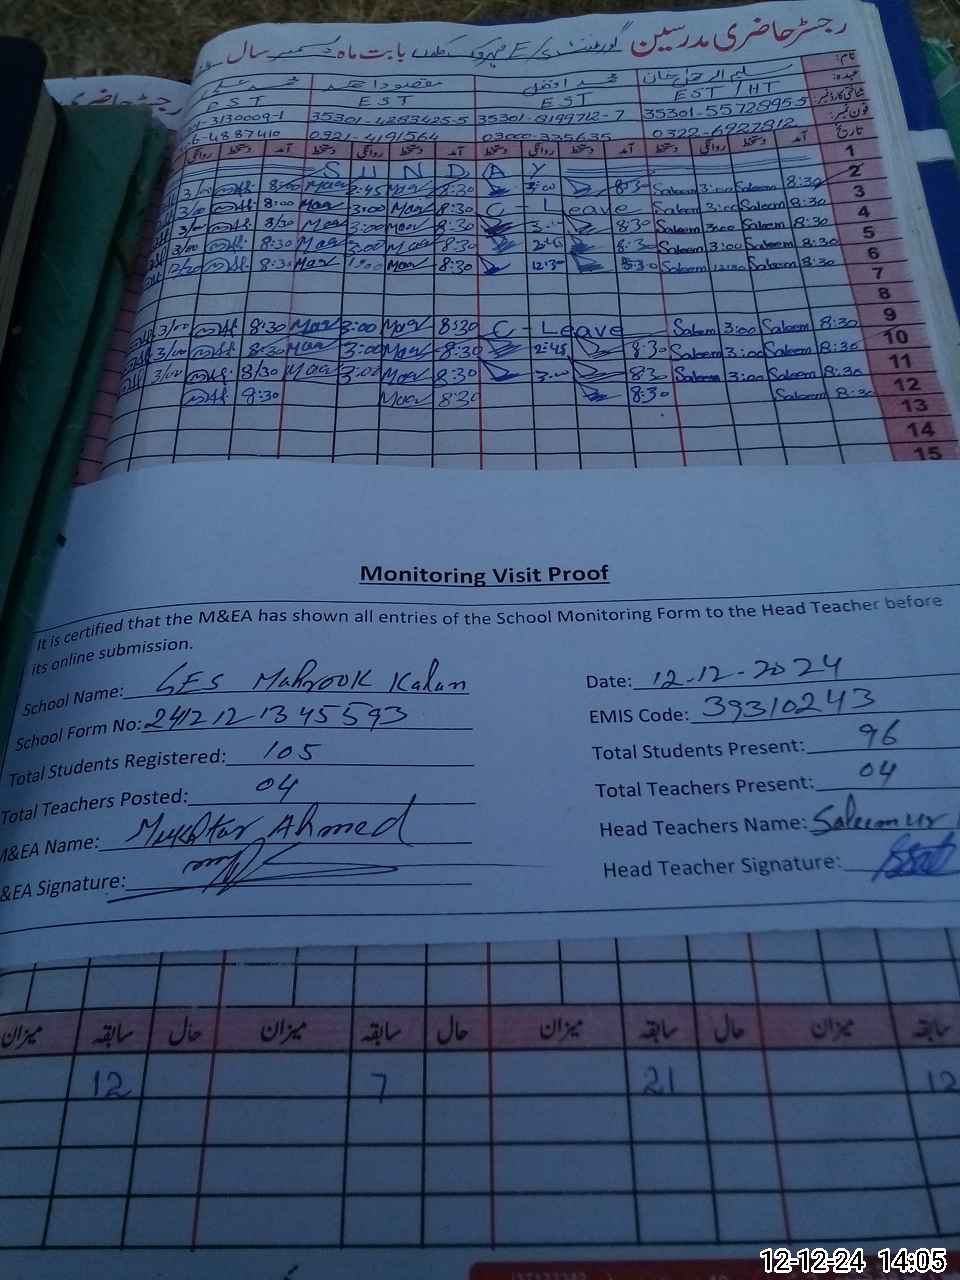 رجسٹر حاضری مدرسین گورنمنٹ E/S مہروک کلاں بابت ماہ دسمبر سال
نام: سلیم الرحمن خان محمد افضل مقصود احمد محمد
عہدہ: EST / HT EST EST EST
شناختی کارڈ نمبر: 35301-5572895-5 35301-8199712-7 35301-4283425-5 -3130009-1
فون نمبر: 0322-6927812 03000-335635 0321-4191564 6-4887410
تاریخ آمد دستخط روانگی دستخط آمد دستخط روانگی دستخط آمد دستخط روانگی دستخط آمد دستخط روانگی
1 S U N D A Y
2 8:30 Saleem 3:00 Saleem 8:30 3:00 8:30 Maq 2:45 Maq 8:00 3/00
3 8:30 Saleem 3:00 Saleem C - Leave 8:30 Maq 3:00 Maq 8:00 3/00
4 8:30 Saleem 3:00 Saleem 8:30 3:00 8:30 Maq 3:00 Maq 8/30 3/00
5 8:30 Saleem 3:00 Saleem 8:30 2:45 8:30 Maq 3:00 Maq 8:30 3/00
6 8:30 Saleem 12:30 Saleem 8:30 12:30 8:30 Maq Maq 8:30 12/30
7
8
9 8:30 Saleem 3:00 Saleem C - Leave 8:30 Maq 3:00 Maq 8:30 3/00
10 8:30 Saleem 3:00 Saleem 8:30 2:45 8:30 Maq 3:00 Maq 8:30 3/00
11 8:30 Saleem 3:00 Saleem 8:30 3:00 8:30 Maq 3:00 Maq 8/30 3/00
12 8:30 Saleem 8:30 8:30 Maq 8:30
13
14
15
Monitoring Visit Proof
It is certified that the M&EA has shown all entries of the School Monitoring Form to the Head Teacher before
its online submission.
School Name: GES Mahrook Kalan Date: 12-12-2024
School Form No: 2412121345593 EMIS Code: 39310243
Total Students Registered: 105 Total Students Present: 96
Total Teachers Posted: 04 Total Teachers Present: 04
M&EA Name: Mukhtar Ahmed Head Teachers Name: Saleem ur
&EA Signature: Head Teacher Signature:
سابقہ میزان حال سابقہ میزان حال سابقہ میزان حال سابقہ میزان
12 21 7 12
12-12-24 14:05